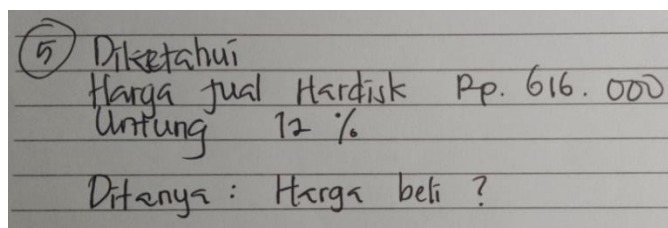 5 Diketahui
Harga jual Hardisk Rp. 616.000
Untung 12 %
Ditanya : Harga beli ?